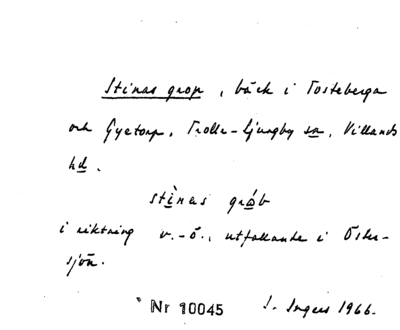 Stinas grop, bäck i Tosteberga
och Gyetorp, Trolle-Ljungby sn, Villands
hd.
stìnas gráb
i riktning v.-ö., utfallande i Öster-
sjön.
Nr 10045 I. Ingers 1966.